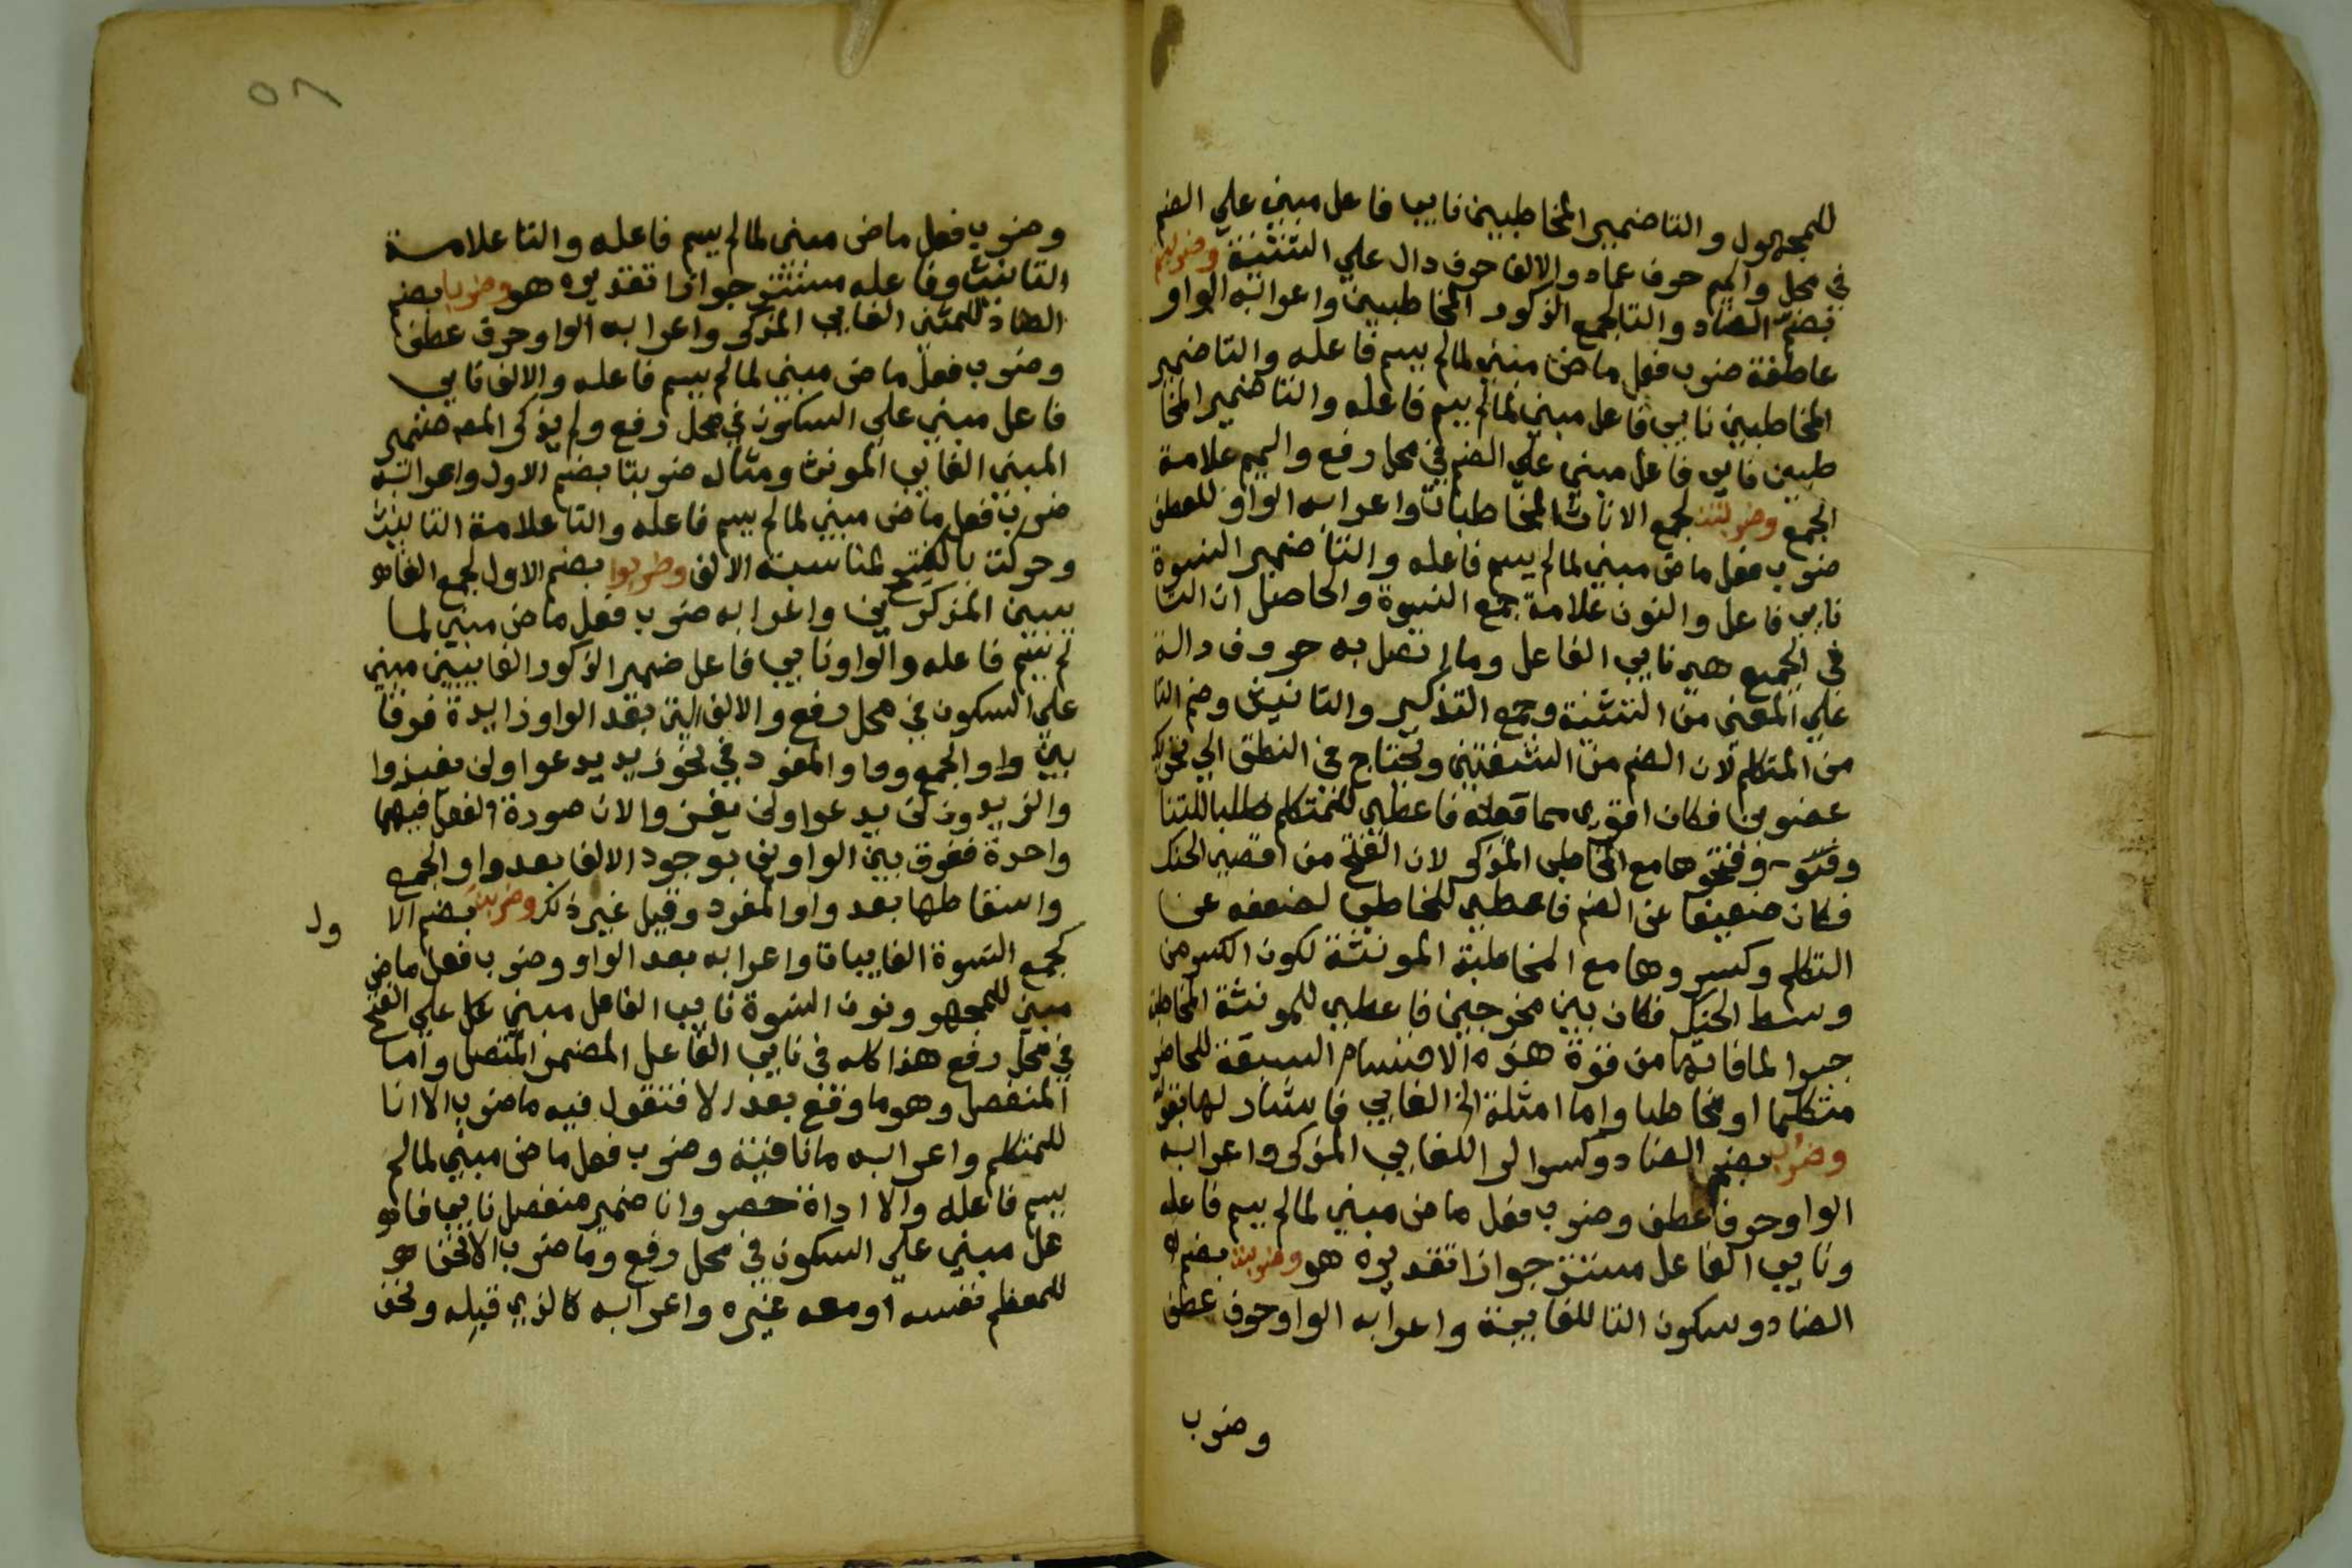 للمجهول والتا ضمير المخاطبين نايب فاعل مبني علي الضم
في محل والميم حرف عماد والالف حرف دال علي التثنية وضربتم
بضم الضاد والتا لجمع الذكور المخاطبين واعرابه الواو
عاطفة ضرب فعل ماض مبني لما لم يسم فاعله والتا ضمير
المخاطبين نايب فاعل مبني لما لم يسم فاعله والتا ضمير المخا
طبين نايب فاعل مبني علي الضم في محل رفع والميم علامة
الجمع وضربتن لجمع الاناث المخاطبات واعرابه الواو للعطف
ضرب فعل ماض مبني لما لم يسم فاعله والتا ضمير النسوة
نايب فاعل والنون علامة جمع النسوة والحاصل ان التا
في الجميع هي نايب الفاعل وما اتصل به حروف دالة
علي المعني من التثنية وجمع التذكير والتانيث وضم التا
من المتكلم لان الضم من الشفتين ويحتاج في النطق الي تحريك
عضوين فكان اقوي مما فاعطي للمتكلم طلبا للتنا
وفتحوها مع المخاطب المذكر لان الفتح من اقصي الحنك
فكان ضعيفا عن الضم فاعطي للمخاطب لضعفه عن
التكلم وكسروها مع المخاطبة المونثة لكون الكسر من
وسط الحنك فكان بين مخرجين فاعطي للمونثة المخاطبة
جبرا لما فاتها من قوة هذه الاقسام السبعة للحاضر
متكلما او مخاطبا واما امثلة الغايب فاشار لها بقوله
وضرب بضم الضاد وكسر الرا للغايب المذكر واعرابه
الواو حرف عطف وضرب فعل ماض مبني لما لم يسم فاعله
ونايب الفاعل مستتر جوازا تقديره هو وضربت بضم
الضاد وسكون التا للغايبة واعرابه الواو حرف عطف
وضرب
٥٨
وضرب فعل ماض مبني لما لم يسم فاعله والتا علامة
التانيث وفاعله مستتر جوازا تقديره هو وضربا بضم
الضاد للمثني الغايب المذكر واعرابه الواو حرف عطف
وضرب فعل ماض مبني لما لم يسم فاعله والالف نايب
فاعل مبني علي السكون في محل رفع ولم يذكر المص ضمير
المثني الغايب المونث ومثاله ضربتا بضم الاول واعرابه
ضرب فعل ماض مبني لما لم يسم فاعله والتا علامة التانيث
وحركت بالفتح لمناسبة الالف وضربوا بضم الاول لجمع الغا
يبين المذكرين واعرابه ضرب فعل ماض مبني لما
لم يسم فاعله والواو نايب فاعل ضمير الذكور الغايبين مبني
علي السكون في محل رفع والالف التي بعد الواو زايدة فرقا
بين واو الجمع وواو المفرد في نحو زيد يدعوا ولن يغزوا
والزيدون لن يدعوا ولن يغزوا لان صورة الفعل فيهما
واحدة ففرق بين الواوين بوجود الالف بعد واو الجمع
واسقاطها بعد واو المفرد وقيل غير ذلك وضربن بضم الا
ول
لجمع النسوة الغايبات واعرابه بعد الواو وضرب فعل ماض
مبني للمجهو ونون النسوة نايب الفاعل مبني علي الفتح
في محل رفع هذا كله في نايب الفاعل المضمر المتصل واما
المنفصل وهو ما وقع بعد الا فتقول فيه ما ضرب الا انا
للمتكلم واعرابه ما نافية وضرب فعل ماض مبني لما لم
يسم فاعله والا اداة حصر وانا ضمير منفصل نايب فا
عل مبني علي السكون في محل رفع وما ضرب الا نحن
للمعظم نفسه او معه غيره واعرابه كالذي قبله ونحن